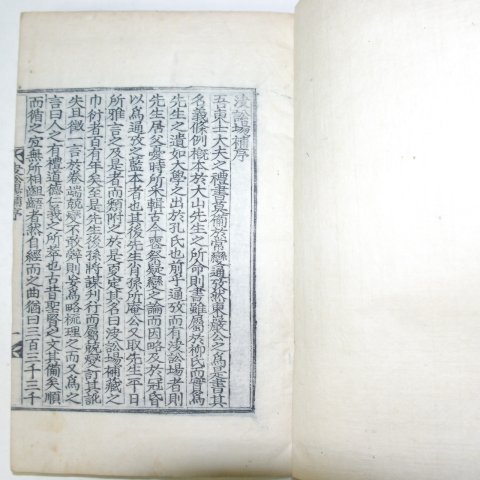 決訟場補序
吾東士大夫之禮書莫備於常變通攷然東巖公之爲是書其
名義條例槩本於大山先生之所命則書雖屬於柳氏而實爲
先生之遺如大學之出於孔氏也前乎通攷而有決訟場者則
先生居父憂時所朱輯古今喪祭疑變之論而因略及於冠昏
以爲通攷之藍本者也其後先生肖孫所庵公又取先生平日
所雅言之及是者而類附之於是更定其名曰決訟場補藏之
巾衍者百有年矣至是先生後孫將謀刊行而屬兢燮訂其訛
失且徵一言於卷端兢燮不敢辭則妄爲略梳理之而又爲之
言曰人之有禮道德仁義之所萃也古昔聖賢之文其備矣順
而循之宜無所相齟齬者然自經而之曲猶曰三百三千三千